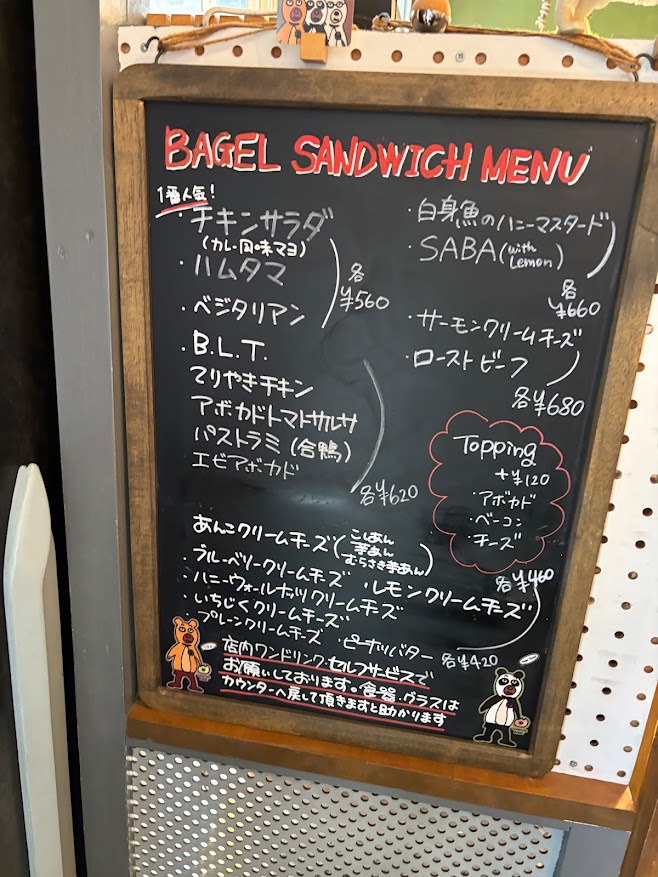 BAGEL SANDWICH MENU
1番人気!
・チキンサラダ
(カレー風味マヨ)
・ハムタマ
・ベジタリアン
各
¥560
・B.L.T.
てりやきチキン
アボカドトマトサルサ
パストラミ(合鴨)
エビアボカド
各¥620
・白身魚のハニーマスタード
・SABA(with Lemon)
各
¥660
・サーモンクリームチーズ
・ローストビーフ
各¥680
Topping
+¥120
・アボカド
・ベーコン
・チーズ
あんこクリームチーズ(こしあん
芋あん
むらさき芋あん)
各¥460
・ブルーベリークリームチーズ ・レモンクリームチーズ
・ハニーウォールナッツクリームチーズ
・いちじくクリームチーズ
・プレーンクリームチーズ ・ピーナッツバター
各¥420
店内ワンドリンク、セルフサービスで
お願いしております。食器、グラスは
カウンターへ戻して頂きますと助かります